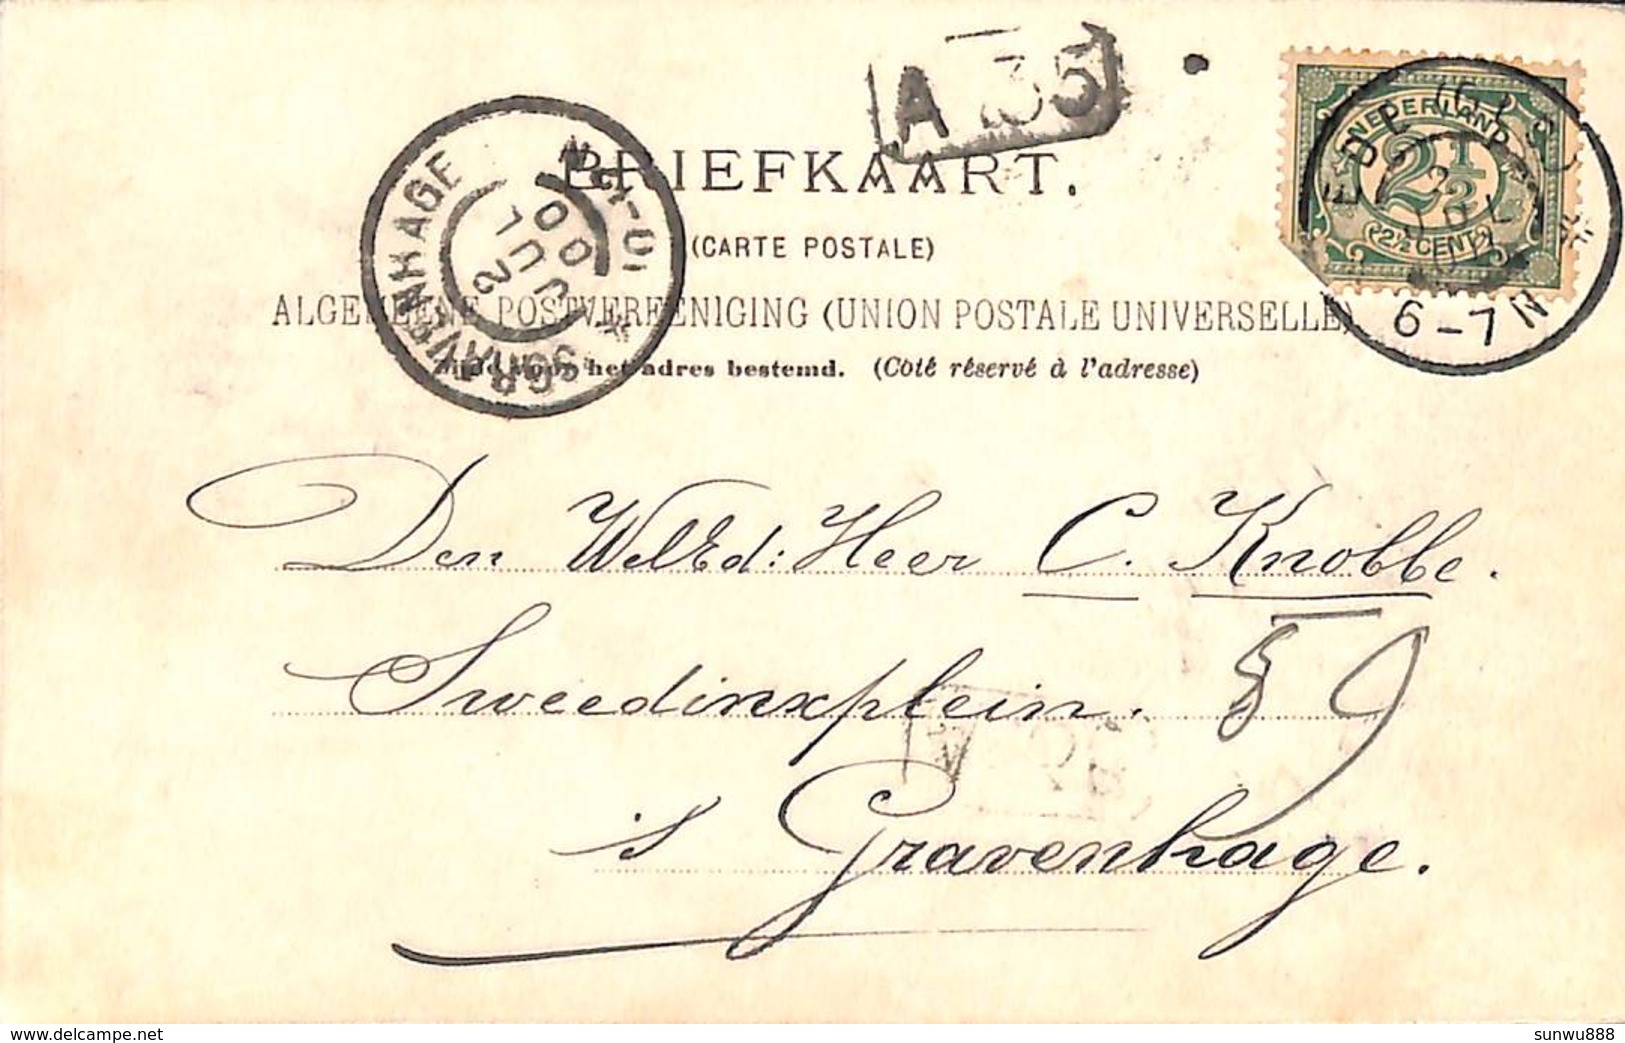 A 35
BRIEFKAART.
(CARTE POSTALE)
ALGEMEENE POSTVEREENIGING (UNION POSTALE UNIVERSELLE)
Zijde voor het adres bestemd. (Côté réservé à l'adresse)
'SGRAVENHAGE
2 JUL 00
NEDERLAND
2½
2½ CENT
EDE (GLD)
2 JUL
6-7 N
Den WelEd: Heer C. Knobbe.
Sweedinxplein. 59
's Gravenhage.
www.delcampe.net
sunwu888